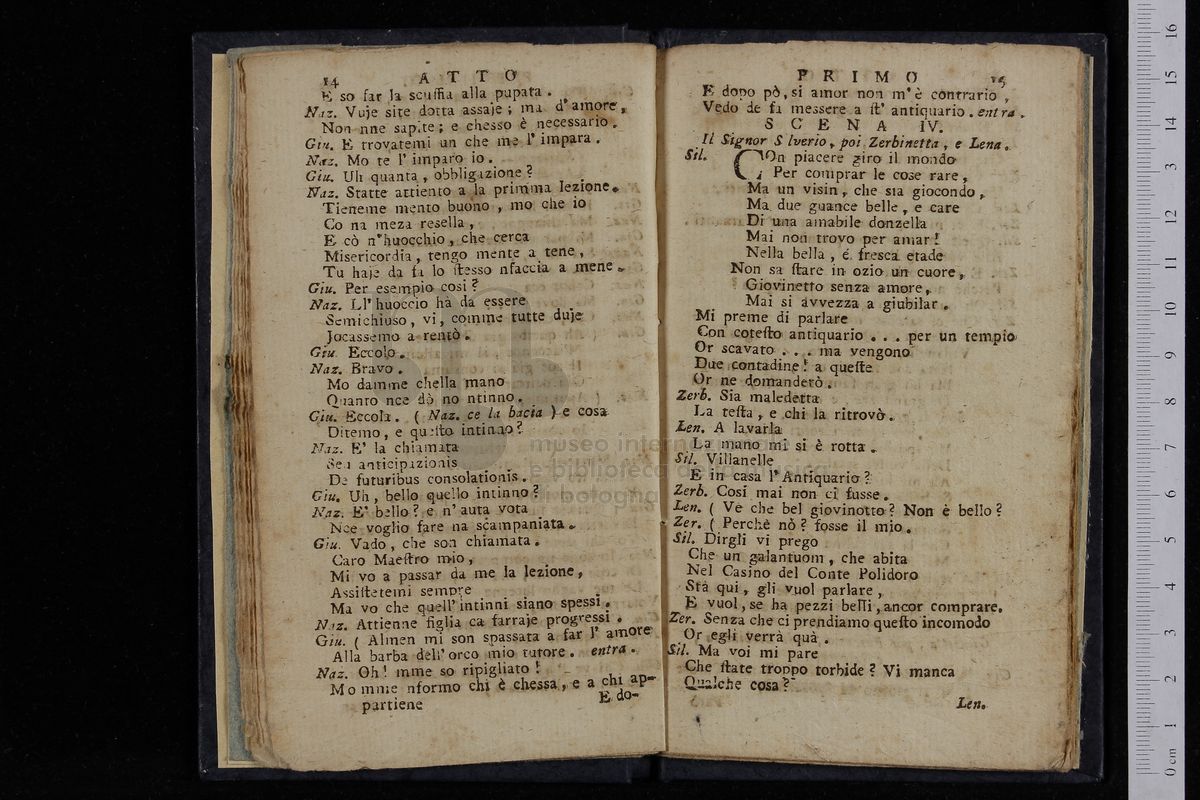 14 A T T O
E so far la scuffia alla pupata .
Naz. Vuje site dotta assaje ; ma d'amore ,
Non nne sapite ; e chesso è necessario .
Giu. E trovatemi un che me l' impara .
Naz. Mo te l' imparo io .
Giu. Uh quanta , obbligazione ?
Naz. Statte attiento a la primma lezione .
Tieneme mento buono , mo che io
Co na meza resella ,
E cò n'huocchio , che cerca
Misericordia , tengo mente a tene ,
Tu haje da fa lo ſtesso nfaccia a mene .
Giu. Per esempio così ?
Naz. Ll' huoccio hà da essere
Semichiuso , vi , comme tutte duje
Jocassemo a rentò .
Giu. Eccolo .
Naz. Bravo .
Mo damme chella mano
Quanto nce dò no ntinno .
Giu. Eccola . ( Naz. ce la bacia ) e cosa
Ditemo , e queſto intinno ?
Naz. E' la chiamata
Seu anticipazionis
De futuribus consolationis .
Giu. Uh , bello quello intinno ?
Naz. E' bello ? e n' auta vota
Nce voglio fare na scampaniata .
Giu. Vado , che son chiamata .
Caro Maeſtro mio ,
Mi vo a passar da me la lezione ,
Assiſtetemi sempre
Ma vo che quell' intinni siano spessi .
Naz. Attienne figlia ca farraje progressi .
Giu. ( Almen mi son spassata a far l' amore
Alla barba dell' orco mio tutore . entra .
Naz. Oh ! mme so ripigliato !
Mo mme nformo chi è chessa , e a chi ap-
partiene E do-
P R I M O 15
E dopo pò , si amor non m' è contrario ,
Vedo de fa messere a ſt' antiquario . entra .
S C E N A IV.
Il Signor S lverio , poi Zerbinetta , e Lena .
Sil. COn piacere giro il mondo
Per comprar le cose rare ,
Ma un visin , che sia giocondo ,
Ma due guance belle , e care
Di una amabile donzella
Mai non trovo per amar !
Nella bella , é fresca etade
Non sa ſtare in ozio un cuore ,
Giovinetto senza amore ,
Mai si avvezza a giubilar .
Mi preme di parlare
Con coteſto antiquario . . . per un tempio
Or scavato . . . ma vengono
Due contadine ! a queſte
Or ne domanderò .
Zerb. Sia maledetta
La teſta , e chi la ritrovò .
Len. A lavarla
La mano mi si è rotta .
Sil. Villanelle
E in casa l' Antiquario ?
Zerb. Così mai non ci fusse .
Len. ( Ve che bel giovinotto ? Non è bello ?
Zer. ( Perchè nò ? fosse il mio .
Sil. Dirgli vi prego
Che un galantuom , che abita
Nel Casino del Conte Polidoro
Stà qui , gli vuol parlare ,
E vuol , se ha pezzi belli , ancor comprare.
Zer. Senza che ci prendiamo queſto incomodo
Or egli verrà quà .
Sil. Ma voi mi pare
Che ſtate troppo torbide ? Vi manca
Qualche cosa ?
Len.
museo internazionale
e biblioteca della musica
di bologna
0 cm 1 2 3 4 5 6 7 8 9 10 11 12 13 14 15 16